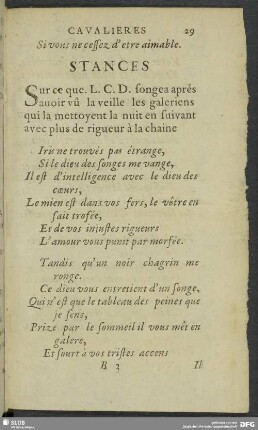 CAVALIERES 29
Si vous ne cessez d'etre aimable.
STANCES
Sur ce que. L. C. D. songea aprés
auoir vû la veille les galeriens
qui la mettoyent la nuit en suivant
avec plus de rigueur à la chaine
Iris ne trouvés pas étrange,
Si le dieu des songes me vange,
Il est d'intelligence avec le dieu des
cœurs,
Le mien est dans vos fers, le vôtre en
fait trofée,
Et de vos injustes rigueurs
L'amour vous punit par morfée.
Tandis qu'un noir chagrin me
ronge.
Ce dieu vous entretient d'un songe,
Qui n'est que le tableau des peines que
je sens,
Prize par le sommeil il vous mét en
galere,
Et sourt à vos tristes accens
B 3 Il
SLUB
DFG